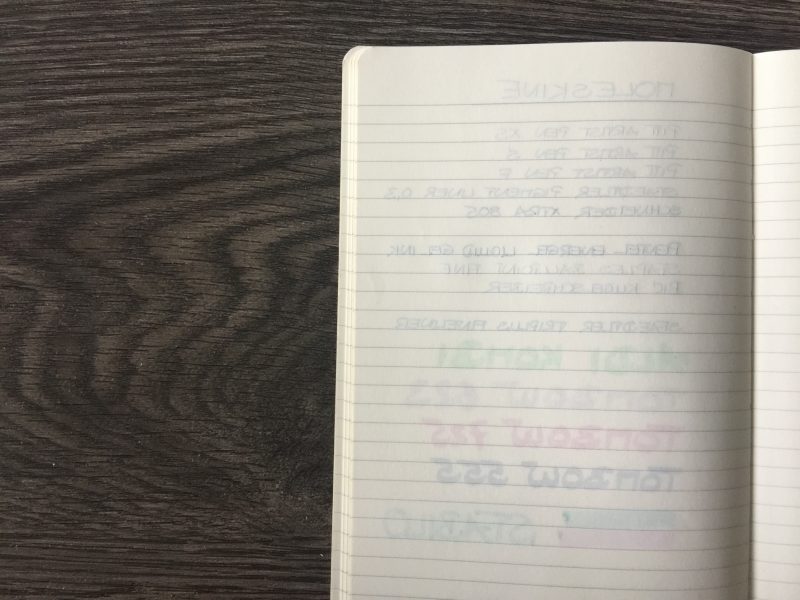 MOLESKINE
PITT ARTIST PEN XS
PITT ARTIST PEN S
PITT ARTIST PEN F
STAEDTLER PIGMENT LINER 0.3
SCHNEIDER XTRA 805
PENTEL ENERGEL LIQUID GEL INK
STAPLES FINE
BIC KUGELSCHREIBER
STAEDTLER TRIPLUS FINELINER
TOMBOW
TOMBOW 725
TOMBOW 555
STABILO